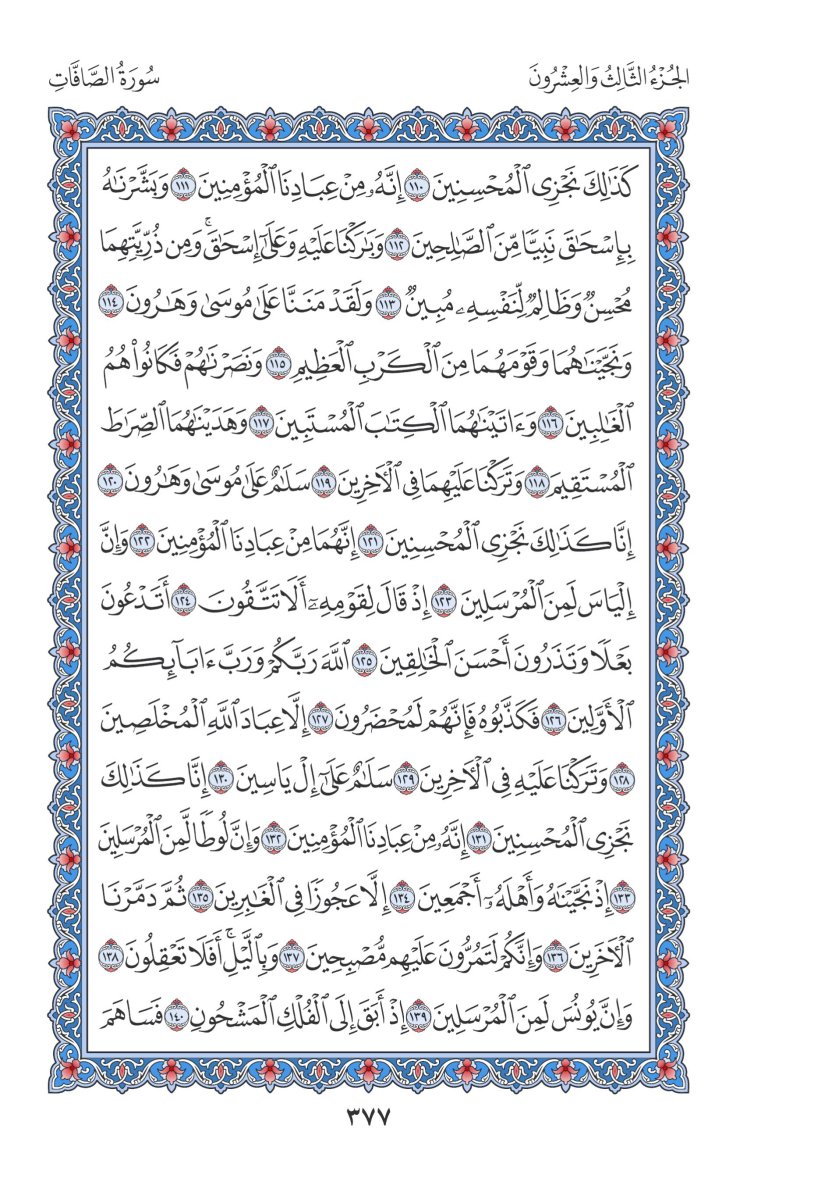 الجُزْءُ الثَّالِثُ وَالعِشْرُونَ
سُورَةُ الصَّافَّاتِ
كَذَٰلِكَ نَجْزِى ٱلْمُحْسِنِينَ ١١٠ إِنَّهُۥ مِنْ عِبَادِنَا ٱلْمُؤْمِنِينَ ١١١ وَبَشَّرْنَٰهُ
بِإِسْحَٰقَ نَبِيًّا مِّنَ ٱلصَّٰلِحِينَ ١١٢ وَبَٰرَكْنَا عَلَيْهِ وَعَلَىٰٓ إِسْحَٰقَ ۚ وَمِن ذُرِّيَّتِهِمَا
مُحْسِنٌ وَظَالِمٌ لِّنَفْسِهِۦ مُبِينٌ ١١٣ وَلَقَدْ مَنَنَّا عَلَىٰ مُوسَىٰ وَهَٰرُونَ ١١٤
وَنَجَّيْنَٰهُمَا وَقَوْمَهُمَا مِنَ ٱلْكَرْبِ ٱلْعَظِيمِ ١١٥ وَنَصَرْنَٰهُمْ فَكَانُوا۟ هُمُ
ٱلْغَٰلِبِينَ ١١٦ وَءَاتَيْنَٰهُمَا ٱلْكِتَٰبَ ٱلْمُسْتَبِينَ ١١٧ وَهَدَيْنَٰهُمَا ٱلصِّرَٰطَ
ٱلْمُسْتَقِيمَ ١١٨ وَتَرَكْنَا عَلَيْهِمَا فِى ٱلْءَاخِرِينَ ١١٩ سَلَٰمٌ عَلَىٰ مُوسَىٰ وَهَٰرُونَ ١٢٠
إِنَّا كَذَٰلِكَ نَجْزِى ٱلْمُحْسِنِينَ ١٢١ إِنَّهُمَا مِنْ عِبَادِنَا ٱلْمُؤْمِنِينَ ١٢٢ وَإِنَّ
إِلْيَاسَ لَمِنَ ٱلْمُرْسَلِينَ ١٢٣ إِذْ قَالَ لِقَوْمِهِۦٓ أَلَا تَتَّقُونَ ١٢٤ أَتَدْعُونَ
بَعْلًا وَتَذَرُونَ أَحْسَنَ ٱلْخَٰلِقِينَ ١٢٥ ٱللَّهَ رَبَّكُمْ وَرَبَّ ءَابَآئِكُمُ
ٱلْأَوَّلِينَ ١٢٦ فَكَذَّبُوهُ فَإِنَّهُمْ لَمُحْضَرُونَ ١٢٧ إِلَّا عِبَادَ ٱللَّهِ ٱلْمُخْلَصِينَ
١٢٨ وَتَرَكْنَا عَلَيْهِ فِى ٱلْءَاخِرِينَ ١٢٩ سَلَٰمٌ عَلَىٰٓ إِلْ يَاسِينَ ١٣٠ إِنَّا كَذَٰلِكَ
نَجْزِى ٱلْمُحْسِنِينَ ١٣١ إِنَّهُۥ مِنْ عِبَادِنَا ٱلْمُؤْمِنِينَ ١٣٢ وَإِنَّ لُوطًا لَّمِنَ ٱلْمُرْسَلِينَ
١٣٣ إِذْ نَجَّيْنَٰهُ وَأَهْلَهُۥٓ أَجْمَعِينَ ١٣٤ إِلَّا عَجُوزًا فِى ٱلْغَٰبِرِينَ ١٣٥ ثُمَّ دَمَّرْنَا
ٱلْءَاخَرِينَ ١٣٦ وَإِنَّكُمْ لَتَمُرُّونَ عَلَيْهِم مُّصْبِحِينَ ١٣٧ وَبِٱلَّيْلِ ۗ أَفَلَا تَعْقِلُونَ ١٣٨
وَإِنَّ يُونُسَ لَمِنَ ٱلْمُرْسَلِينَ ١٣٩ إِذْ أَبَقَ إِلَى ٱلْفُلْكِ ٱلْمَشْحُونِ ١٤٠ فَسَاهَمَ
٣٧٧